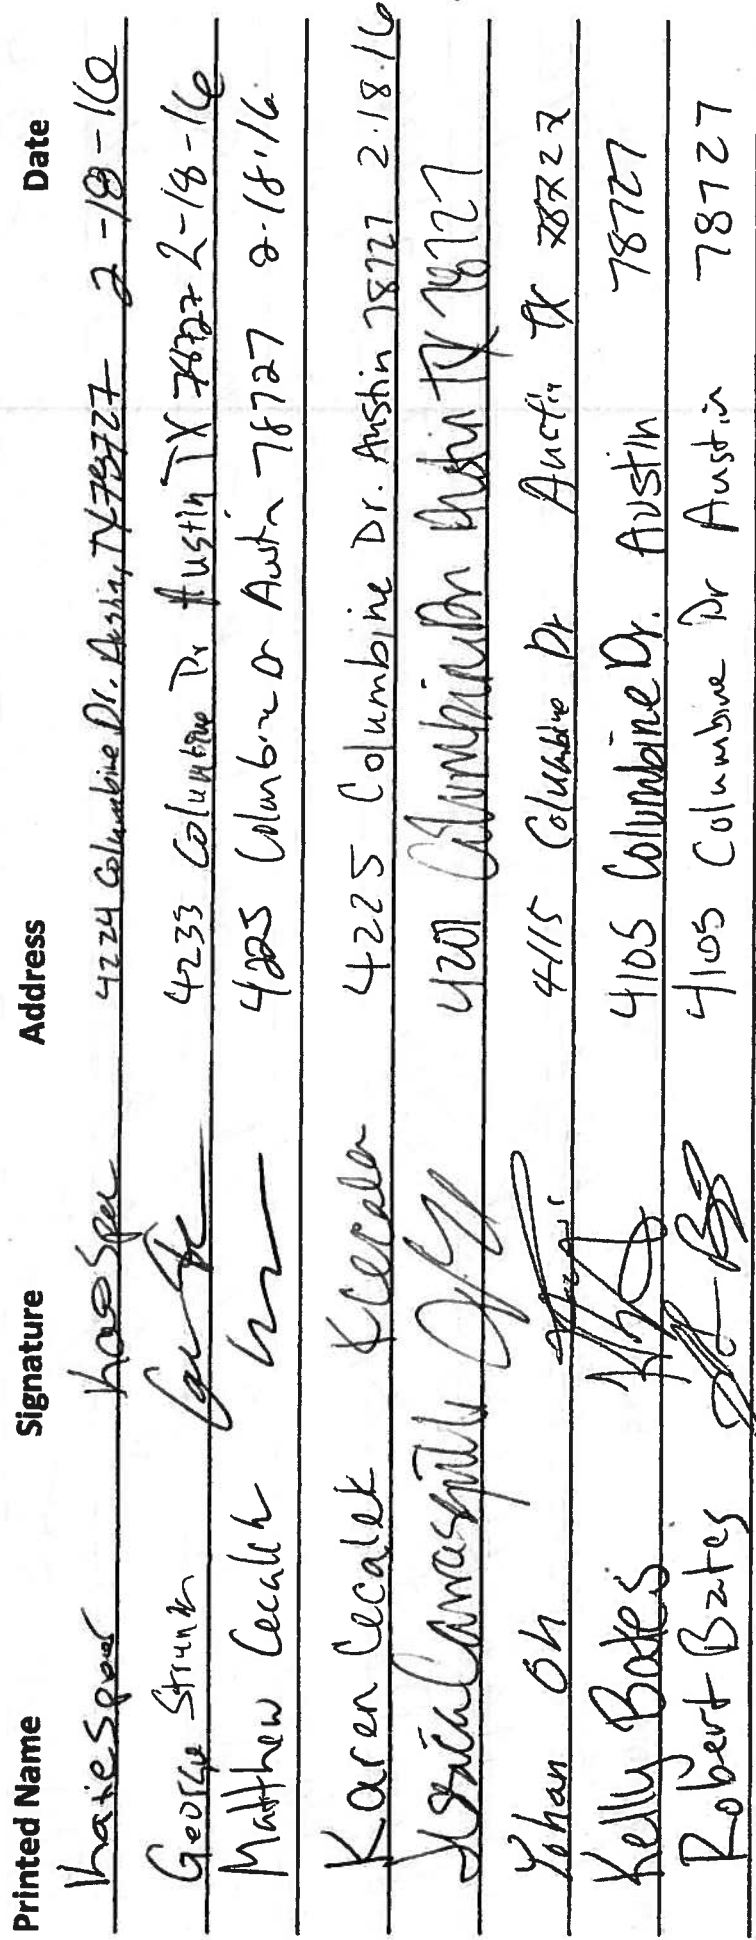 Printed Name Signature Address Date
Katie Speer 4224 Columbine Dr. Austin, TX 78727 2-18-16
George 4233 Columbine Dr Austin TX 78727 2-18-16
Matthew Cecalek 4225 Columbine Dr Austin 78727 2.18.16
Karen Cecalek KCecalek 4225 Columbine Dr. Austin 78727 2.18.16
Jessica Carrasquillo 4201 Columbine Dr Austin TX 78727
Yohan Oh 4115 Columbine Dr Austin TX 78727
Kelly Bates 4105 Columbine Dr. Austin 78727
Robert Bates 4105 Columbine Dr Austin 78727